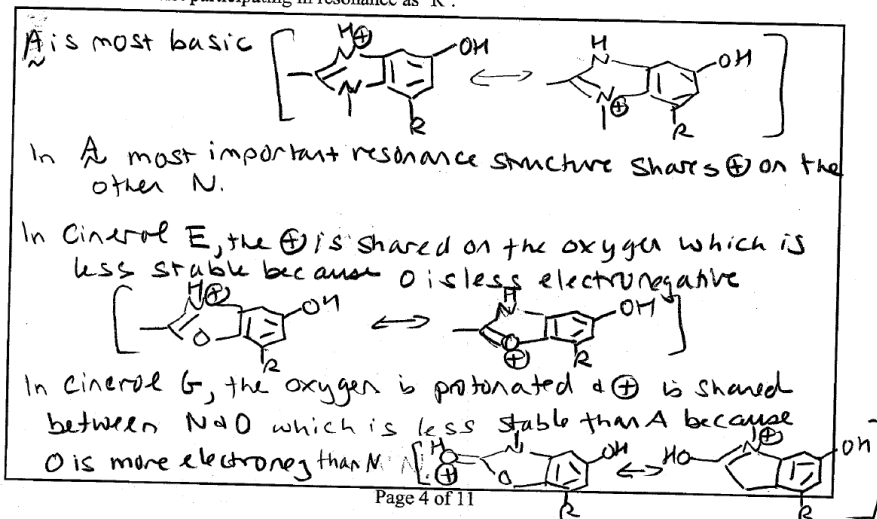 participating in resonance as "R".
A is most basic
H⊕ N OH N R ⟷ H N OH N⊕ R
In A most important resonance structure shares ⊕ on the
other N.
In Cinerol E, the ⊕ is shared on the oxygen which is
less stable because O is less electronegative
H⊕ N OH O R ⟷ H N OH O⊕ R
In Cinerol G, the oxygen is protonated & ⊕ is shared
between N & O which is less stable than A because
O is more electroneg than N.
H O⊕ N OH O R ⟷ HO N⊕ OH R
Page 4 of 11